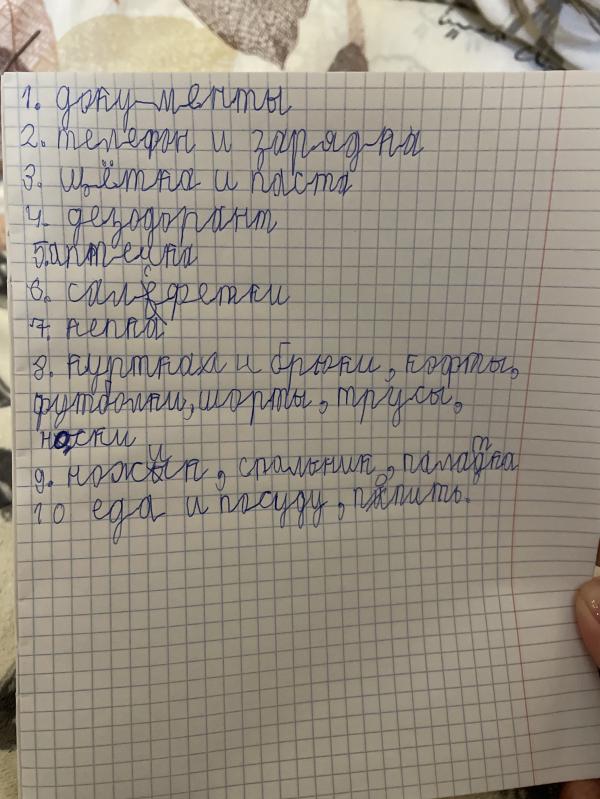 1. документы
2. телефон и зарядка
3. щётка и паста
4. дезодорант
5. аптечка
6. салфетки
7. кепка
8. куртках и брюки, кофты,
футболки, шорты, трусы,
носки
9. ножик, спальник, палатка
10 еда и посуду, попить.